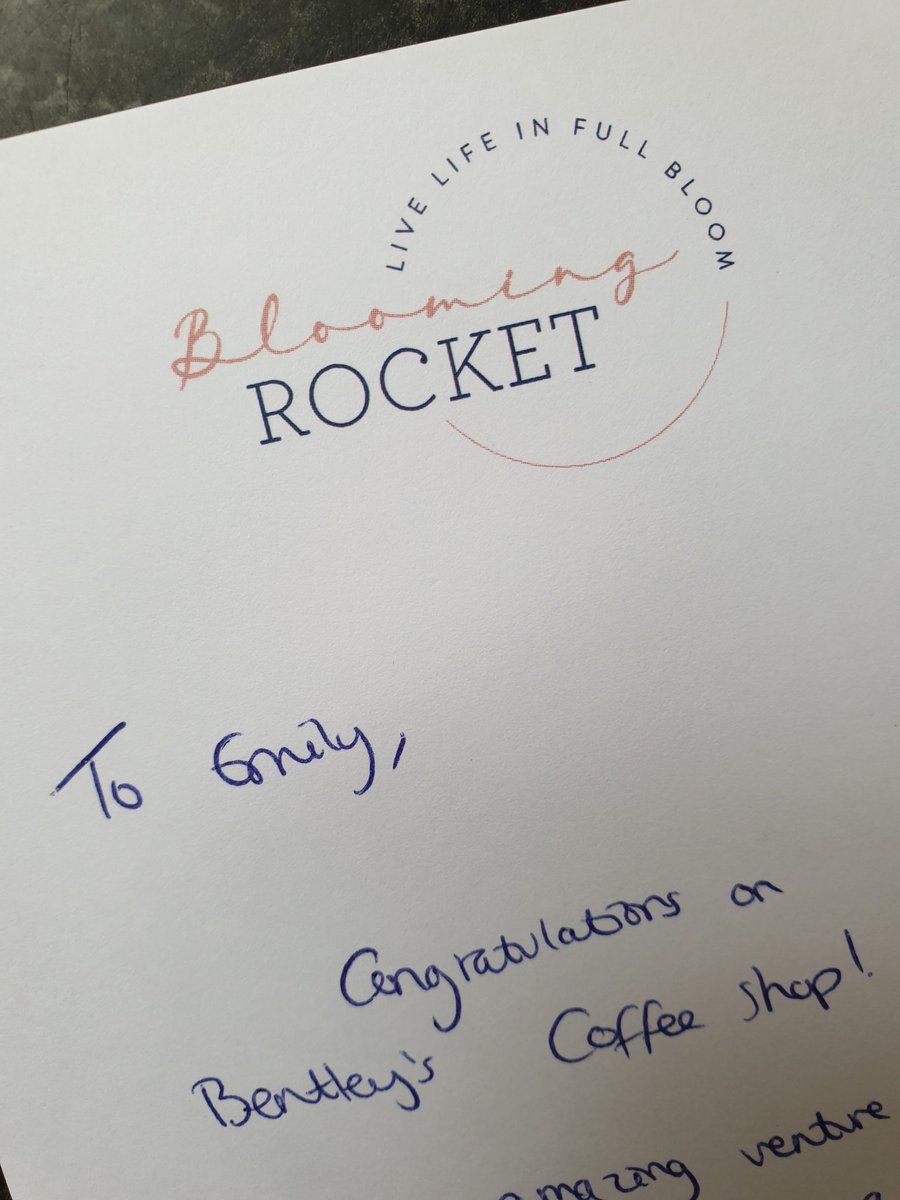 LIVE LIFE IN FULL BLOOM
Blooming
ROCKET
To Emily,
Congratulations on
Bentley's Coffee shop!
amazing venture